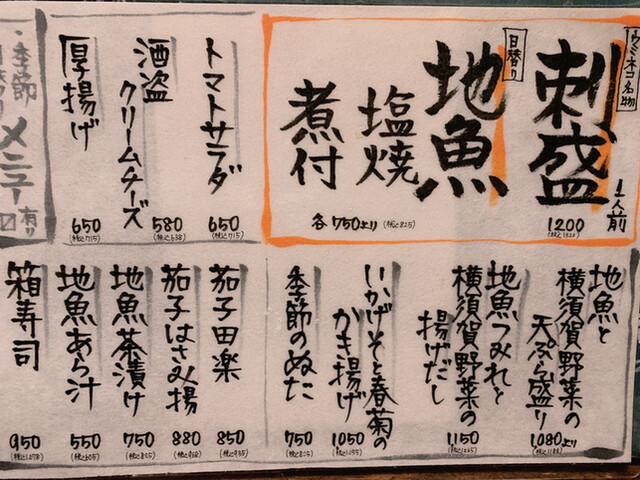 ウミネコ名物
刺盛
1人前
1200
(税込1320)
日替り
地魚
塩焼
煮付
各750より(税込825)
トマトサラダ
650
(税込715)
酒盗
クリームチーズ
580
(税込638)
厚揚げ
650
(税込715)
・季節
日替り
メニュー
有り
地魚と
横須賀野菜の
天ぷら盛り
1,080より
(税込1188)
地魚つみれと
横須賀野菜の
揚げだし
1150
(税込1265)
いかげそと春菊の
かき揚げ
1050
(税込1155)
季節のぬた
750
(税込825)
茄子田楽
850
(税込935)
茄子はさみ揚
880
(税込968)
地魚茶漬け
750
(税込825)
地魚あら汁
550
(税込605)
箱寿司
950
(税込1,045)